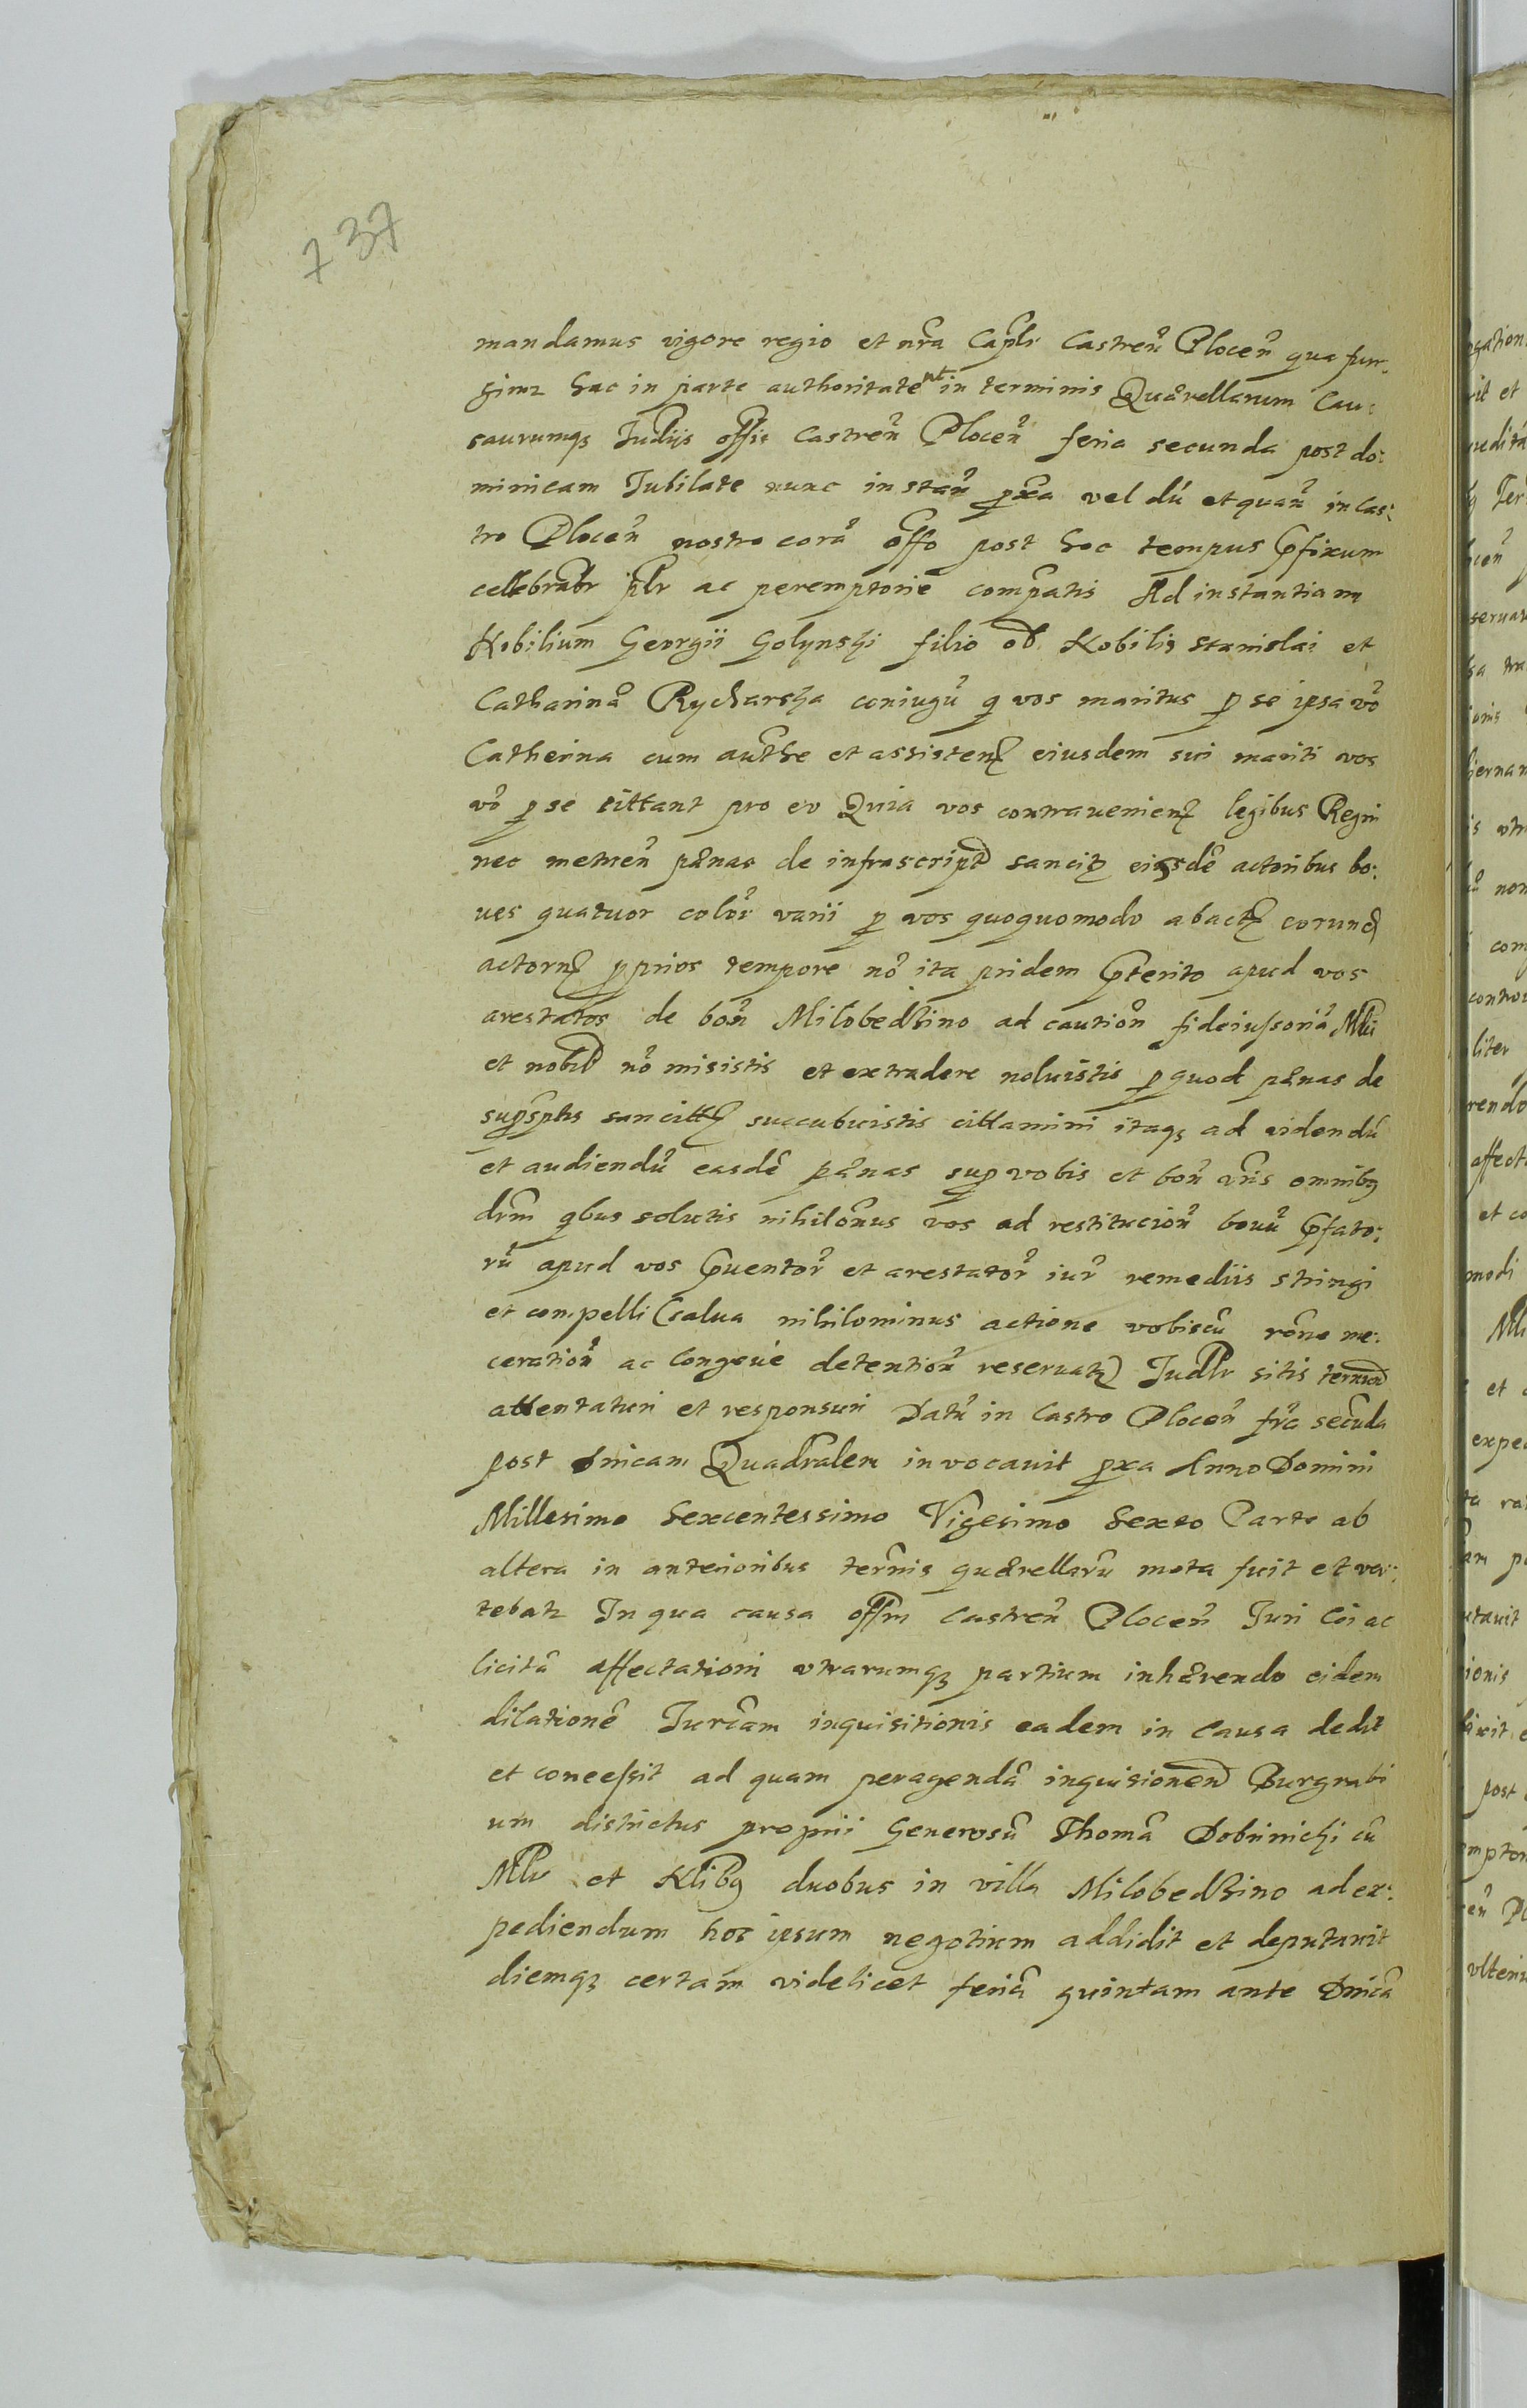 737
mandamus vigore regio et nra Capli Castren Plocen qua fun-
gimr hac in parte authoritate ut in terminis Quærellarum Cau:
saurumq Judijs offii Castren Plocen feria secunda post do:
minicam Jubilate nunc instan pxa vel dú et quan in Cas:
tro Plocen nostro corã offo post hoc tempus pfixum
cellebrabr plr ac peremptorie compatis Ad instantiam
Nobilium Georgii Golynski filio od Nobilis Stanislai et
Catharinæ Rycharska coniugũ q vos maritus p se ipsa vo
Catherina cum authe et assisten eiusdem sui mariti vos
vo p se cittant pro eo Quia vos contravenien legibus Regni
nec metuen pænas de infrascript sancit eisdẽ actoribus bo:
ves quatuor color varii p vos quoquomodo abact eorund
actorum pprios tempore no ita pridem pterito apud vos
arestatos de bon Milobedzino ad caution fideiussoriã Mli
et nobil no misistis et extradere noluistis p quod pænas de
supsptis sancitt succubuistis cittamini itaq ad videndũ
et audiendũ easdẽ pænas sup vobis et bon vris omnibq
drm qbus solutis nihilonus vos ad restitucion bouũ pfato:
rũ apud vos puentor et arestator iur remediis stringi
et compelli (salua nihilominus actione vobiscũ rone me:
ceration ac longeuè detention reservat) Judlr sitis termin
attentaturi et responsuri Datũ in Castro Plocen fra secunda
post dnicam Quadralem invocavit pxa Anno Domini
Millesimo Sexcentessimo Vigesimo Sexto Parte ab
altera in anterioribus termis quærellarũ mota fuit et ver:
tebatr In qua causa offm Castren Plocen Juri Coi ac
licitæ affectationi utrarumq partium inhærendo eidem
dilationẽ Jurcam inquisitionis eadem in Causa dedit
et concessit ad quam peragendã inquisionem Burgrabi
um districtus proprii Generosũ Thomã Dobrinichi cũ
Mlr et Nlibq duobus in villa Milobedzino ad ex:
pediendum hoc ipsum negotium addidit et deputavit
diemq certam videlicet feriã quintam ante Dnicã